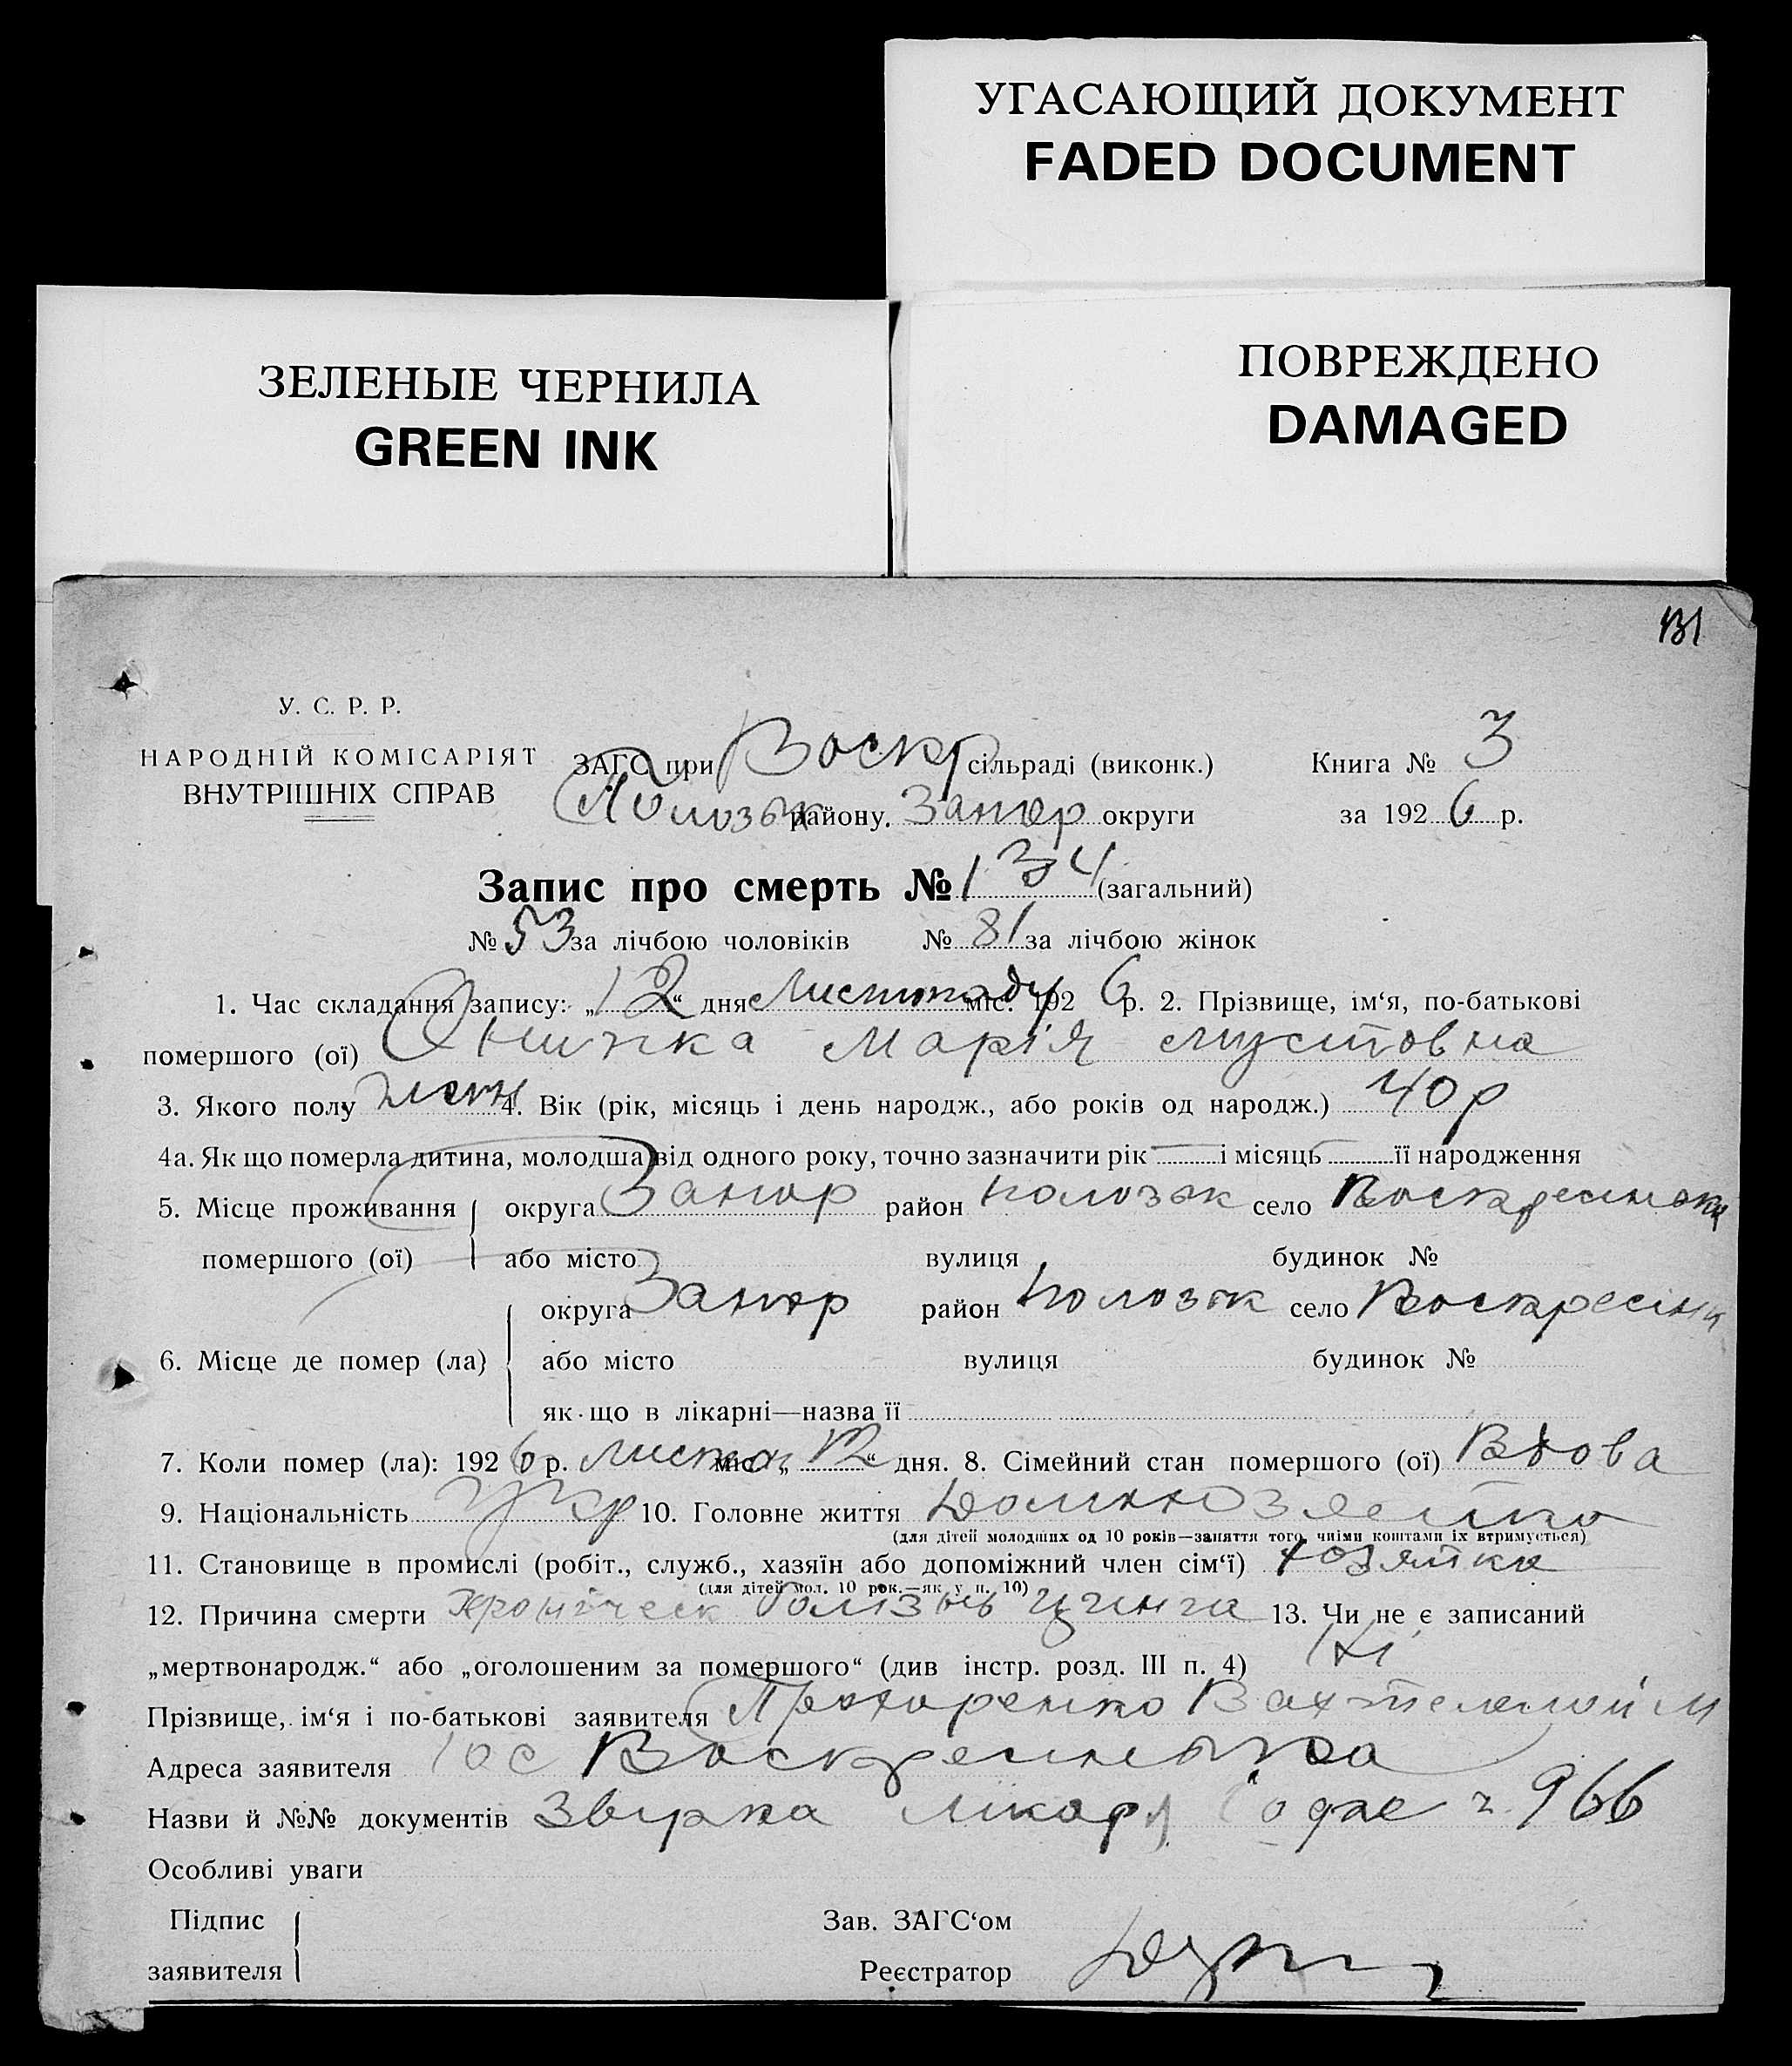 УГАСАЮЩИЙ ДОКУМЕНТ
FADED DOCUMENT
ЗЕЛЕНЫЕ ЧЕРНИЛА
GREEN INK
ПОВРЕЖДЕНО
DAMAGED
131
У. С. Р. Р.
НАРОДНІЙ КОМІСАРІЯТ
ВНУТРІШНІХ СПРАВ
ЗАГС при Воскр сільраді (виконк.) Книга № 3
району. Запор округи за 1926 р.
Запис про смерть № 134 (загальний)
№ 53 за лічбою чоловіків № 81 за лічбою жінок
1. Час складання запису: „12“ дня Листопаду міс. 1926 р. 2. Прізвище, ім‘я, по-батькові
помершого (ої) Марія
3. Якого полу жін 4. Вік (рік, місяць і день народж., або років од народж.) 40 р
4а. Як що померла дитина, молодша від одного року, точно зазначити рік — і місяць — її народження
5. Місце проживання округа Запор район Полозьк село Воскресенька
помершого (ої) або місто вулиця будинок №
округа Запор район Полозьк село Воскресінк
6. Місце де помер (ла) або місто вулиця будинок №
як-що в лікарні—назва її
7. Коли помер (ла): 1926 р. Листоп міс. „12“ дня. 8. Сімейний стан помершого (ої) Вдова
9. Національність Укр 10. Головне життя
(для дітей молодших од 10 років—заняття того, чиїми коштами їх втримується)
11. Становище в промислі (робіт., служб., хазяїн або допоміжний член сім‘ї) хозяйка
(для дітей мол. 10 рок.—як у п. 10)
12. Причина смерти хронічеськ болізнь цинга 13. Чи не є записаний
„мертвонародж.“ або „оголошеним за помершого“ (див інстр. розд. III п. 4) Ні
Прізвище, ім‘я і по-батькові заявителя
Адреса заявителя с Воскресенька
Назви й №№ документів лікаря ч. 966
Особливі уваги
Підпис Зав. ЗАГС‘ом
заявителя Реєстратор